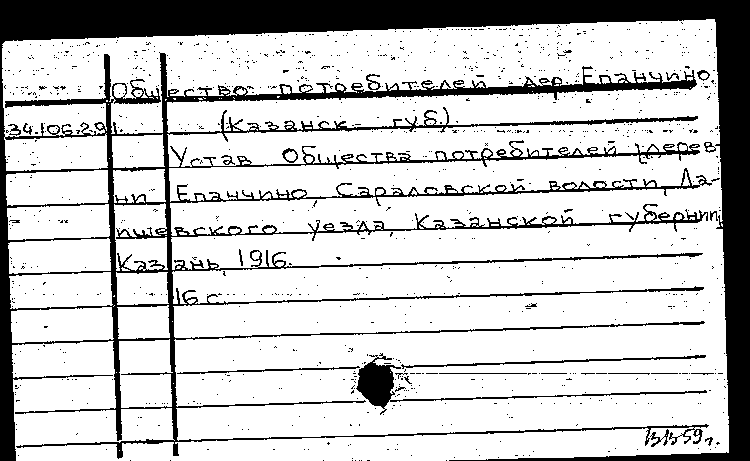 Общество потребителей дер. Епанчино
34.106.2.91. (Казанск. губ.).
Устав Общества потребителей [дерев-
ни Епанчино, Сараловской волости, Ла-
ишевского уезда, Казанской губернии].
Казань, 1916.
16 с.
59 г.